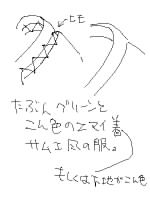 ヒモ
たぶん グリーンと
こん色の二マイ着
サムエ風の服。
もしくは下地がこん色